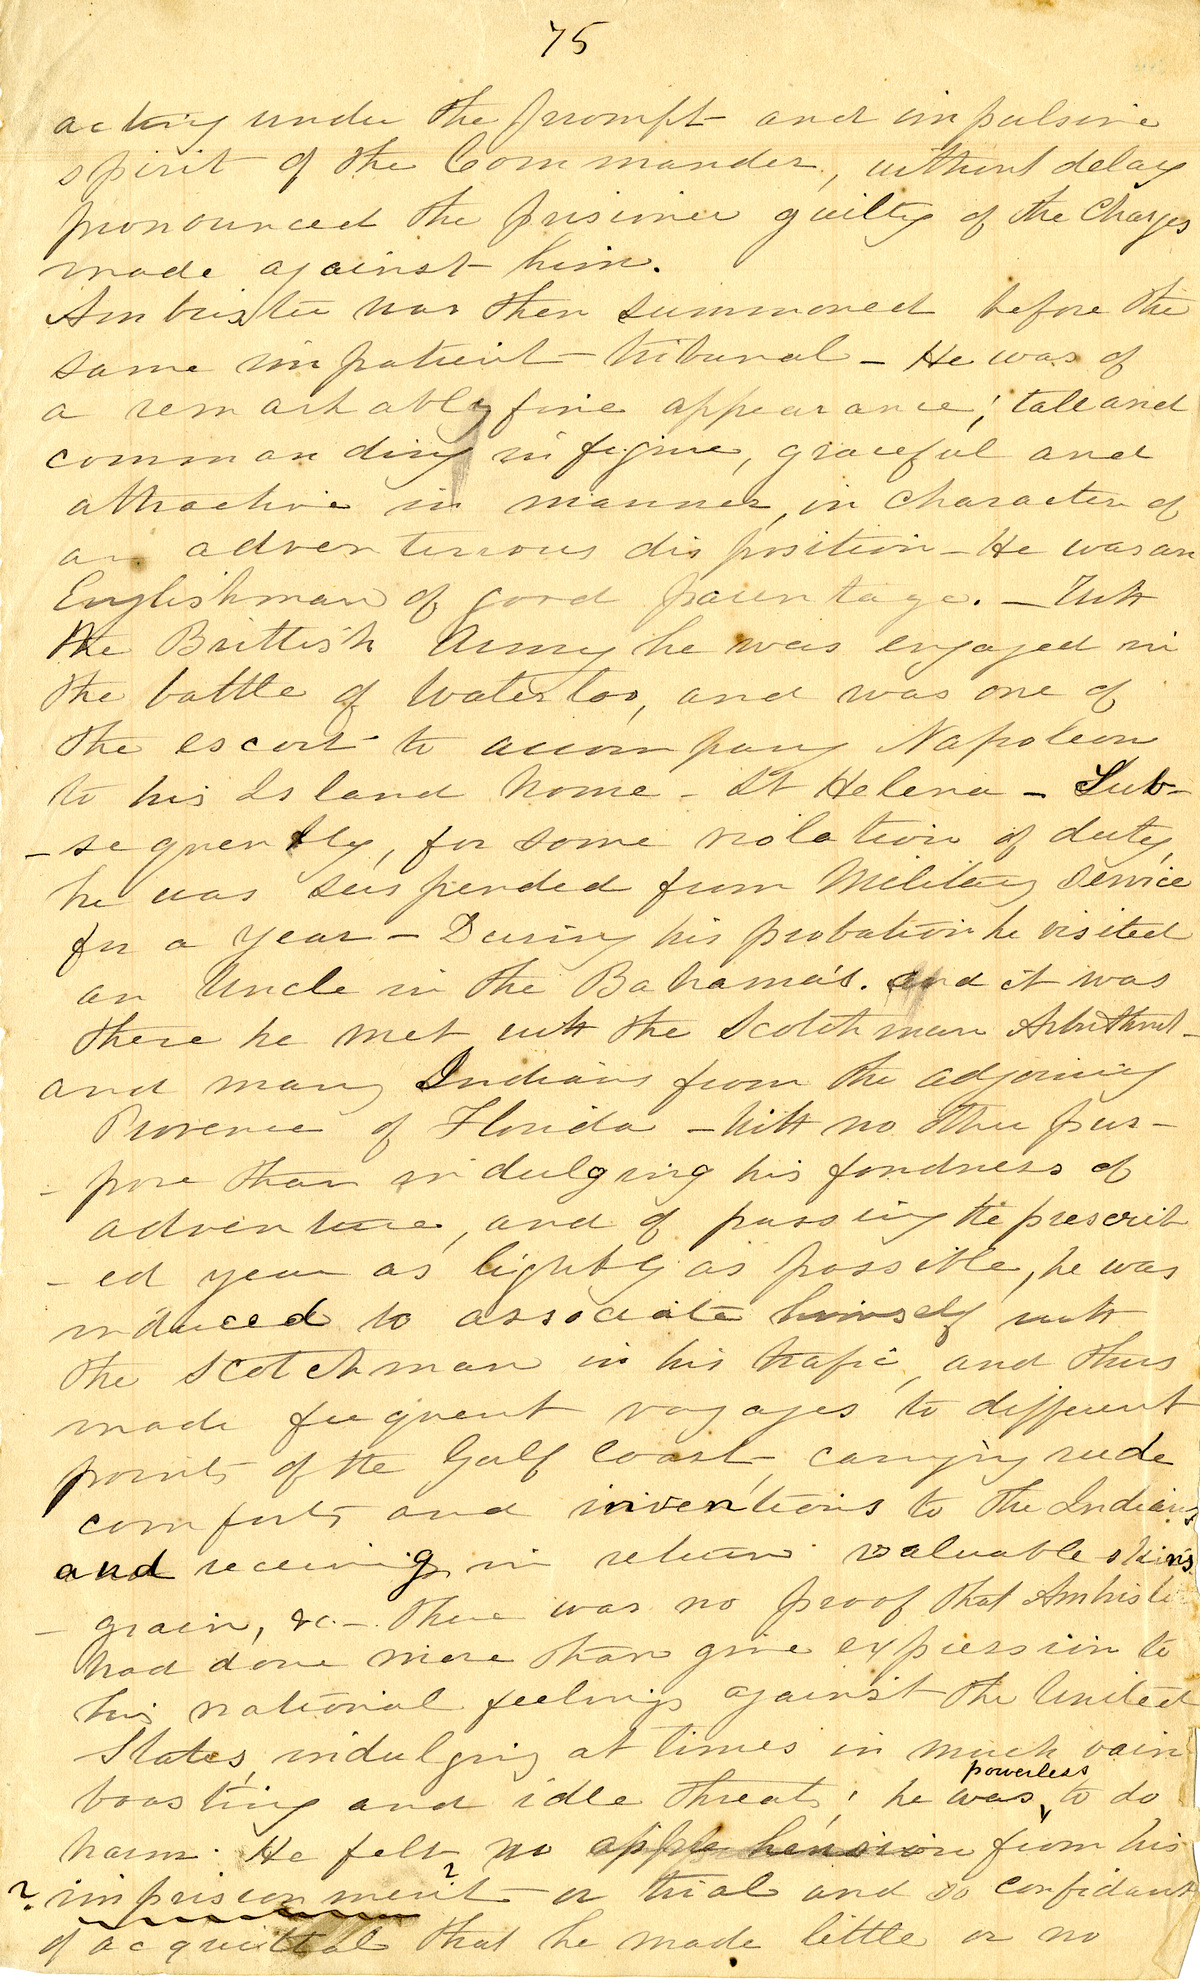 75
acting under the prompt and impulsive
spirit of the Commander, without delay
pronounced the prisoner guilty of the Charges
made against him.
Ambrister was then summoned before the
same impatient tribunal - He was of
a remarkably fine appearance; tall and
commanding in figure, graceful and
attractive in manner, in character of
an adventurous disposition - He was an
Englishman of good parentage. - With
the Brittish Army he was engaged in
the battle of Waterloo, and was one of
the escort to accompany Napoleon
to his Island home - St Helena - Sub-
- sequently, for some violation of duty,
he was suspended from Military Service
for a year - During his probation he visited
an Uncle in the Bahama's. and it was
there he met with the Scotchman Arbuthnot -
and many Indians from the adjoining
Provence of Florida - With no other pur-
- pose than indulging his fondness of
adventure, and of passing the prescrib
- ed year as lightly as possible, he was
induced to associate himself with
the Scotchman in his trafic, and thus
made frequent voyages to different
points of the Gulf Coast, carrying rude
comforts and inventions to the Indians
and receiving in return valuable skins
- grain, &c - there was no proof that Ambriste
had done more than give expression to
his national feelings against the United
States, indulging at times in much vain
boasting and idle threats; he was powerless to do
harm. He felt no apprehension from his
? imprisonment ? or trial and so confidant
of acquittal that he made little or no